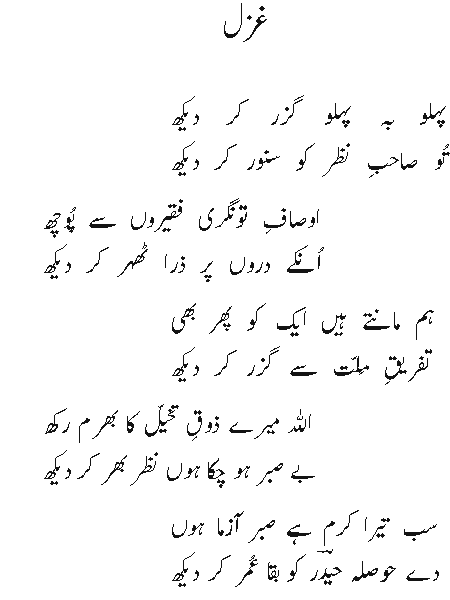 غزل
پہلو بہ پہلو گزر کر دیکھ
تُو صاحبِ نظر کو سنور کر دیکھ
اوصافِ تونگری فقیروں سے پُوچھ
اُنکے دروں پر ذرا ٹھہر کر دیکھ
ہم مانتے ہیں ایک کو پھر بھی
تفریقِ ملّت سے گزر کر دیکھ
اللہ میرے ذوقِ تخیّل کا بھرم رکھ
بے صبر ہو چکا ہوں نظر بھر کر دیکھ
سب تیرا کرم ہے صبر آزما ہوں
دے حوصلہ حیدؔر کو بقا عُمر کر دیکھ